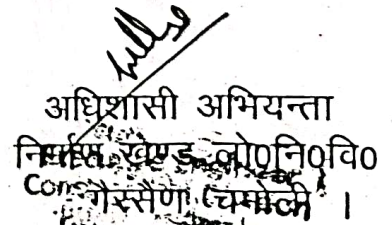 अधिशासी अभियन्ता
निर्माण खण्ड लो0नि0वि0
गैरसैण (चमोली) ।